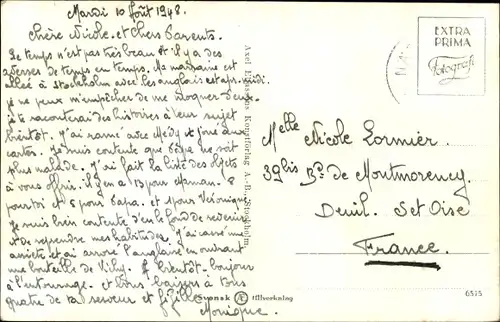 Mardi 10 Août 1948.
Chère Nicole et Chers Parents.
Le temps n'est pas très beau et il y a des
averses de temps en temps. Ma marraine est
allée à Stockholm avec les anglais cet après-midi
je ne peux m'empêcher de me moquer d'eux.
je te raconterai des histoires à leur sujet
bientôt. J'ai ramé avec Médy et joué aux
cartes. Je suis contente que Pépé ne soit
plus malade. J'ai fait la liste des objets
à vous offrir. il y en a 13 pour maman. 8
pour toi et 5 pour papa. et pour Véronique
Je suis bien contente d'en le fond de revenir
et de reprendre mes habitudes. J'ai cassé une
assiette et ai arrosé l'anglaise en ouvrant
une bouteille de Vichy. A bientôt. bonjour
à l'entourage. et bons baisers à tous
quatre de ta soeur et fille
Monique.
Axel Eliassons Konstförlag A.-B., Stockholm.
Svensk Æ tillverkning
EXTRA
PRIMA
Fotografi
Melle Nicole Lormier
39bis Bd de Montmorency
Deuil. Set Oise
France.
6515